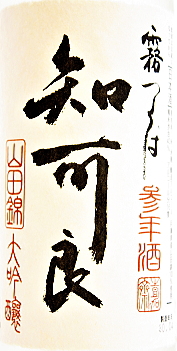 霧つくは
知可良
参年酒
山田錦
大吟醸